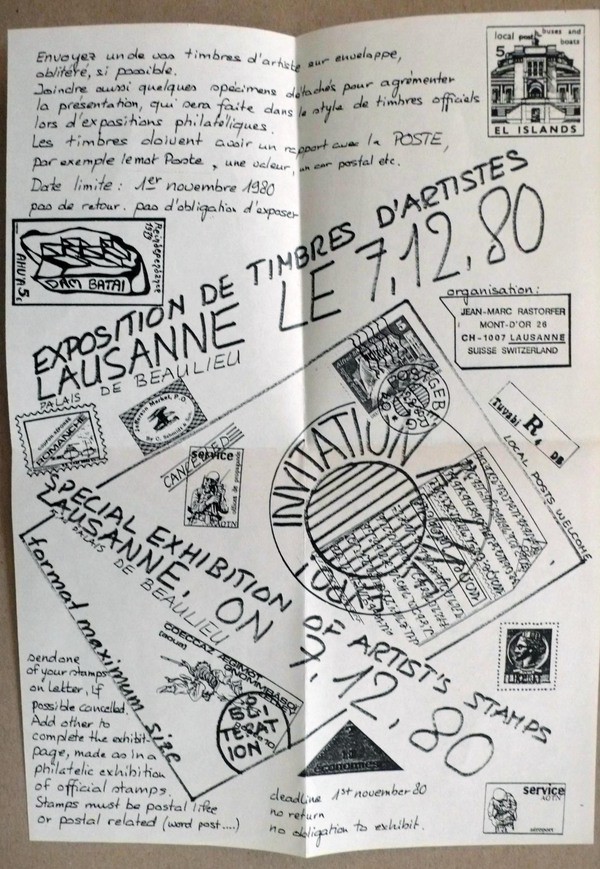 Envoyez un de vos timbres d'artiste sur enveloppe,
oblitéré, si possible.
Joindre aussi quelques spécimens détachés pour agrémenter
la présentation, qui sera faite dans le style de timbres officiels
lors d'expositions philatéliques.
Les timbres doivent avoir un rapport avec la POSTE,
par exemple le mot Poste, une valeur, un car postal etc.
Date limite: 1er novembre 1980
pas de retour. pas d'obligation d'exposer
local post buses and boats
5
EL ISLANDS
AHVA, 5,
DAM BATAI
EXPOSITION DE TIMBRES D'ARTISTES
LAUSANNE LE 7,12,80
PALAIS DE BEAULIEU
organisation:
JEAN-MARC RASTORFER
MONT-D'OR 26
CH-1007 LAUSANNE
SUISSE SWITZERLAND
5
INVITATION
Tuvabi R4 DB
LOCAL POSTS WELCOME
ROMANCHE
Market, P.O.
CANCELLED
service
AOTN
SPECIAL EXHIBITION OF ARTIST'S STAMPS
LAUSANNE, ON 7,12,80
PALAIS DE BEAULIEU
format maximum size
send one
of your stamps
on letter, if
possible cancelled.
Add other to
complete the exhibit-
page, made as in a
philatelic exhibition
of official stamps.
Stamps must be postal like
or postal related (word post....)
economies
deadline 1st november 80
no return
no obligation to exhibit.
service
AOTN
aéroport